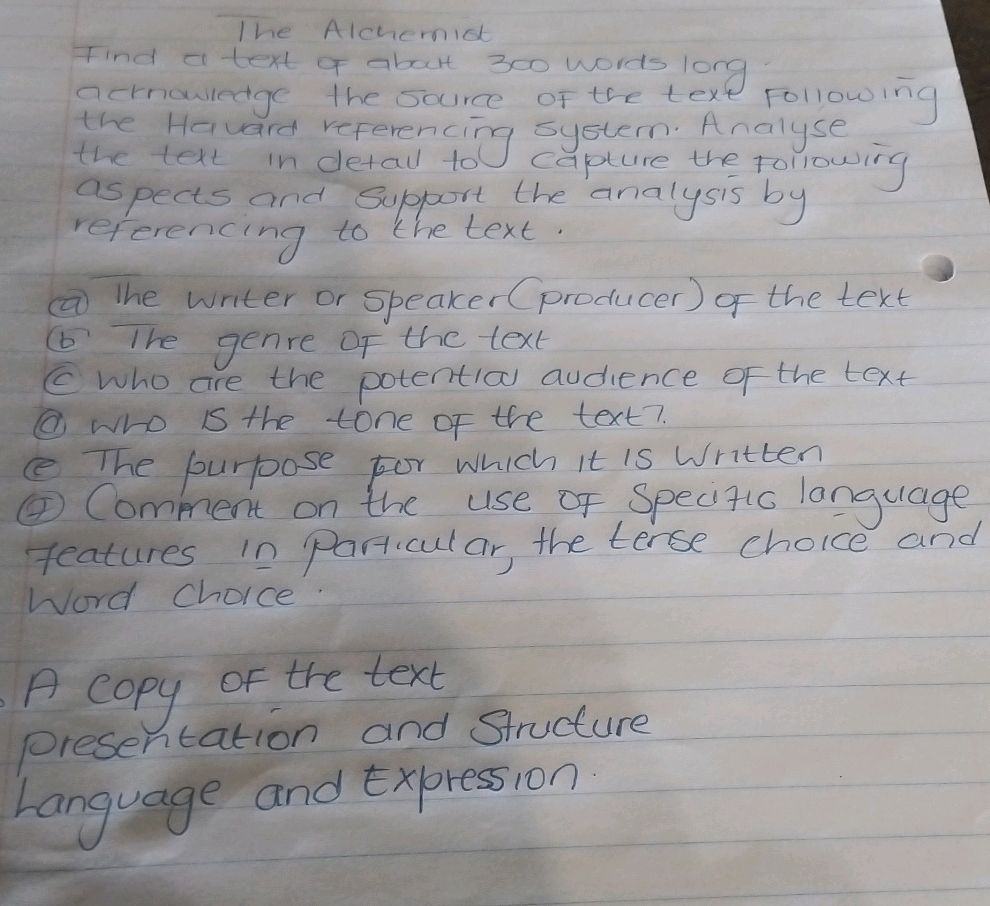 The Alchemist
Find a text of about 300 words long.
acknowledge the source of the text Following
the Havard referencing system. Analyse
the text in detail to capture the following
aspects and support the analysis by
referencing to the text.
(a) The writer or speaker (producer) of the text
(b) The genre of the text
(c) who are the potential audience of the text
(d) who is the tone of the text?.
(e) The purpose for which it is written
(f) Comment on the use of specific language
features in particular, the tense choice and
word choice.
A copy of the text
presentation and structure
Language and Expression.